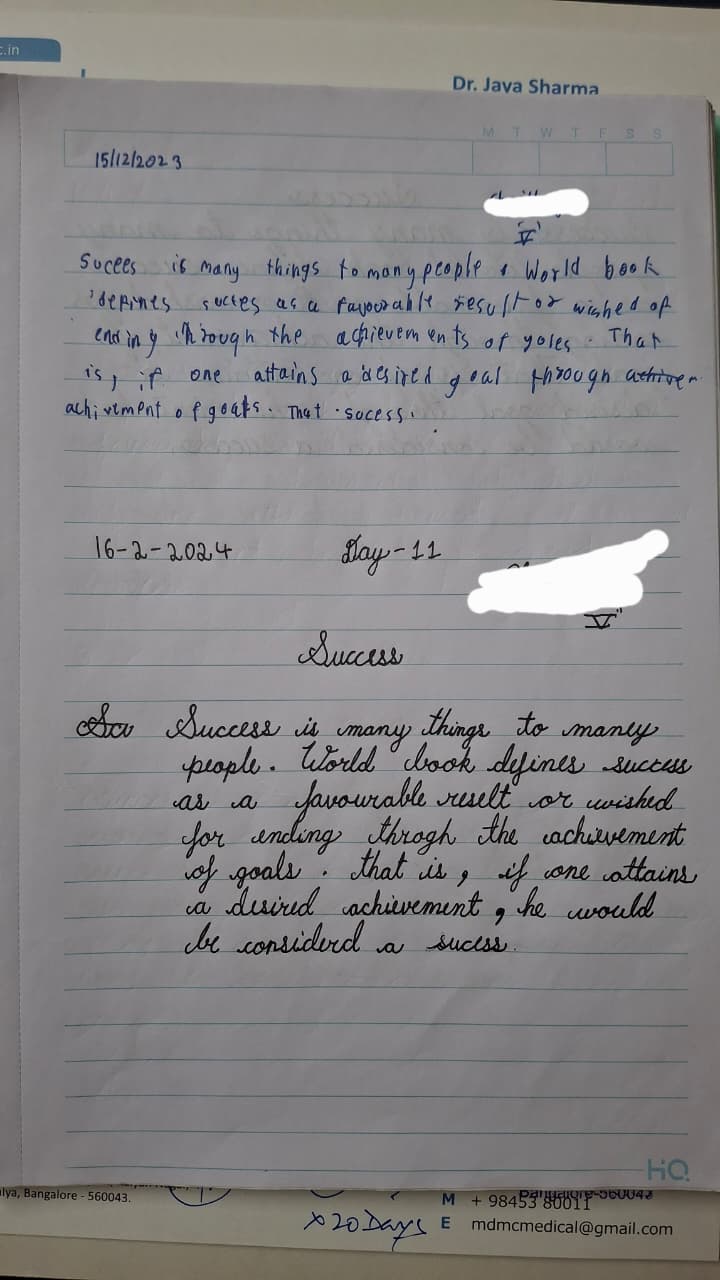 c.in
Dr. Java Sharma
M T W T F S S
15/12/2023
V'
Sucees is many things to many people , World book
'defines succes as a favourable result or wished of
ending through the achievements of goles. That
is, if one attains a desired goal through achivem
achivement of goals. That sucess.
16-2-2024 Day-11
V"
Success
Su Success is many things to maney
people. World book defines success
as a favourable reselt or wished
for ending throgh the achievement
of goals. that is, if one attains
a desired achievement, he would
be considerd a sucess.
HQ
alya, Bangalore - 560043.
Bangalore-560043
M + 98453 80011
x 20 Days E mdmcmedical@gmail.com